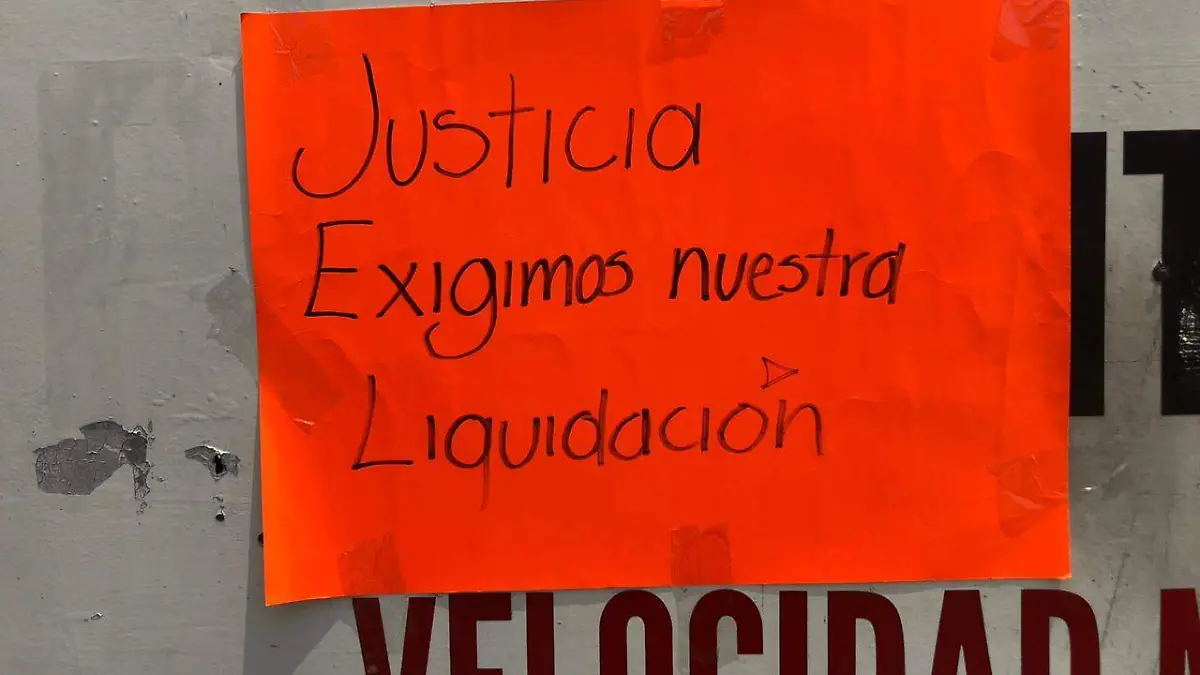 Justicia
Exigimos nuestra
Liquidación
VELOCIDAD